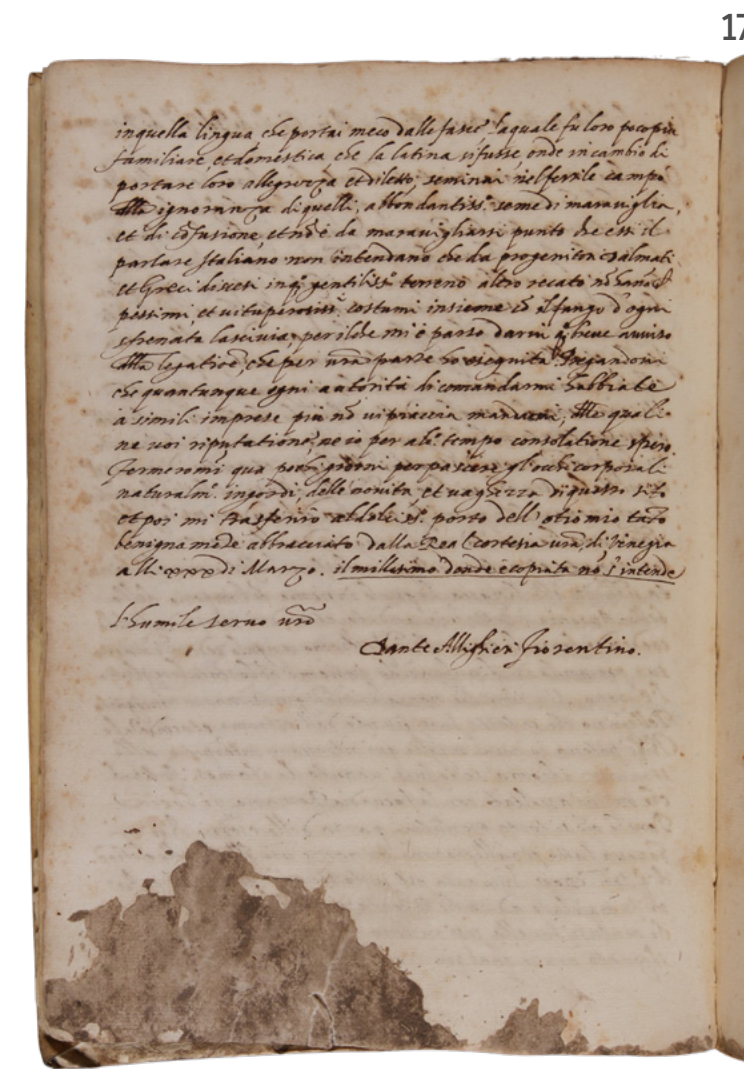 17
inquella lingua che portai meco dalle fasce laquale fu loro poco piu
familiare, et domestica che la latina si fusse, onde in cambio di
portare loro allegrezza et diletto, seminai nel fertile campo
alla ignoranza di quelli, abbondantiss.º seme di maraviglia,
et di cōfusione, et nō è da maravigliarsi punto che essi il
parlare Italiano non intendano che da progenitori Dalmati
et Greci discesi in qͦ gentiliss.º terreno altro recato nō hanno
pessimi, et vituperosiss.i costumi insieme cō il fango d'ogni
sfrenata lascivia; per il che mi è parso darvi qͦ breve avviso
alla legatiōe, che per vrā parte ho eseguita Pregandovi
che quantunque ogni autorità di comandarmi habbiate
à simili imprese più nō vi piaccia mandarmi, alle quali
ne voi riputatione, ne io per alc.º tempo consolatione spero
fermeromi qua pochi giorni per pascere gl'occhi corporali
naturalm.e ingordi, delle novità, et vaghezza di questo sito
et poi mi trasferirò al dolciss.º porto dell'otio mio tāto
benignamēte abbracciato dalla Real cortesia vrā, di Vinegia
alli xxx di Marzo. il millesimo donde è copiata nō s'intende
L'humile servo vrō
Dante Allighieri Fiorentino.